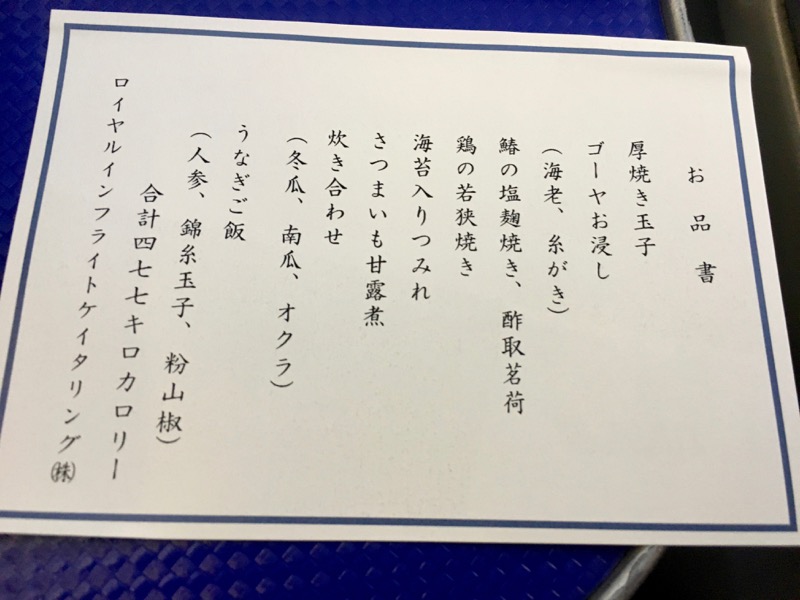 お品書
厚焼き玉子
ゴーヤお浸し
（海老、糸がき）
鰆の塩麹焼き、酢取茗荷
鶏の若狭焼き
海苔入りつみれ
さつまいも甘露煮
炊き合わせ
（冬瓜、南瓜、オクラ）
うなぎご飯
（人参、錦糸玉子、粉山椒）
合計四七七キロカロリー
ロイヤルインフライトケイタリング㈱